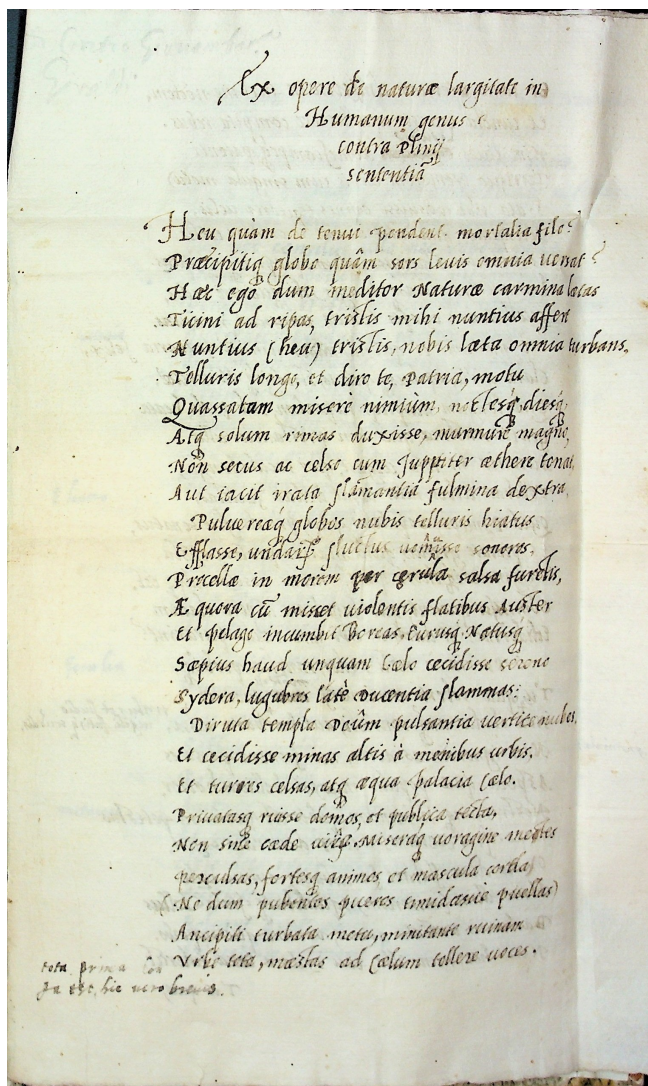 Ex opere de naturæ largitate in
Humanum genus
contra Plinij
sententiã
Heu quàm de tenui pendent mortalia filo?
Præcipitiq globo quâm sors levis omnia versat?
Hæc ego dum meditor Naturæ carmina lætas
Ticini ad ripas, tristis mihi nuntius affert
Nuntius (heu) tristis, nobis læta omnia turbans,
Telluris longo, et diro te, Patria, motu
Quassatam miserè nimiùm, noctesq, diesq,
Atq solum rimas duxisse, murmure magno,
Non secus ac celso cum Juppiter æthere tonat,
Aut iacit irata flamantia fulmina dextra,
Pulvereasq globos nubis telluris hiatus
Efflasse, undarũ fluctus vomuisse sonoros,
Procellæ in morem per cærula salsa furentis,
Æquora cũ miscet violentis flatibus Auster
Et pelago incumbit Boreas, Eurusq, Notusq
Sæpius haud unquam Cælo cecidisse sereno
Sydera, lugubres latè Ducentia flammas:
Diruta templa Deûm pulsantia vertice nubes,
Et cecidisse minas altis à menibus urbis.
Et turres celsas, atq æqua palacia Cælo.
Privatasq ruisse domos, et publica tecta,
Non sine cæde virûm, Miseraq voragine mentes
perculsas, fortesq animos, et mascula corda,
(Ne dum pubentes pueros timidasue puellas)
Ancipiti turbata metu, minitante ruinam
Urbe tota, mæstas ad Cælum tollere voces.
tota prima
est, hic vero brevis.